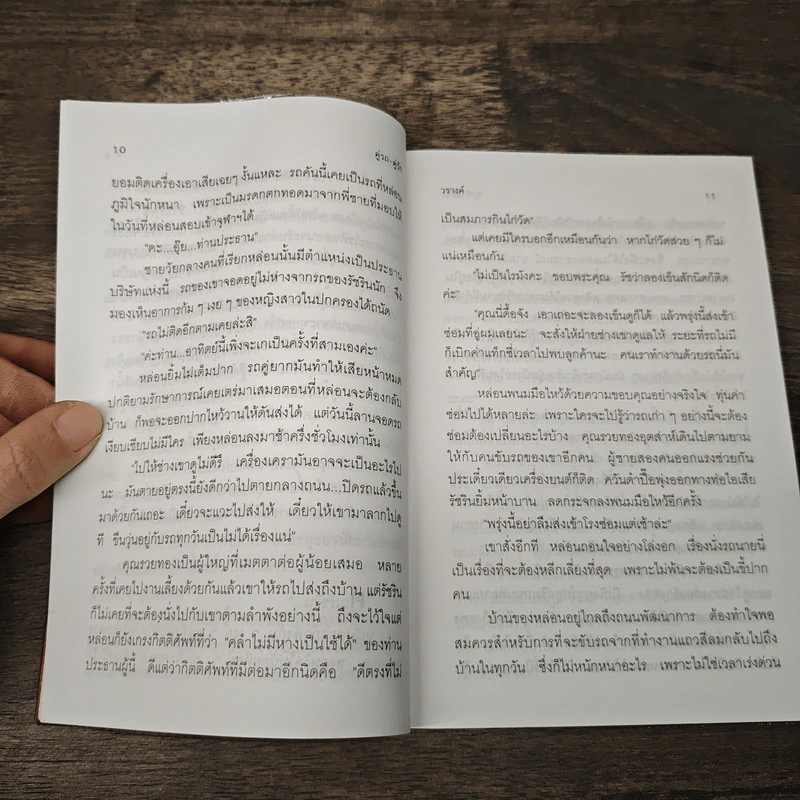 10
คู่รถ-คู่รัก
ยอมติดเครื่องเอาเสียเฉยๆ งั้นแหละ รถคันนี้เคยเป็นรถที่หล่อน
ภูมิใจนักหนา เพราะเป็นมรดกตกทอดมาจากพี่ชายที่มอบให้
ในวันที่หล่อนสอบเข้าจุฬาฯได้
"คะ...อุ๊ย...ท่านประธาน"
ชายวัยกลางคนที่เรียกหล่อนนั้นมีตำแหน่งเป็นประธาน
บริษัทแห่งนี้ รถของเขาจอดอยู่ไม่ห่างจากรถของรัชรินนัก จึง
มองเห็นอาการก้ม ๆ เงย ๆ ของหญิงสาวในปกครองได้ถนัด
"รถไม่ติดอีกตามเคยล่ะสิ"
"ค่ะท่าน...อาทิตย์นี้เพิ่งจะเกเป็นครั้งที่สามเองค่ะ"
หล่อนยิ้มไม่เต็มปาก รถคู่ยากมันทำให้เสียหน้าหมด
ปกติยามรักษาการณ์เคยเตร่มาเสมอตอนที่หล่อนจะต้องกลับ
บ้าน ก็พอจะออกปากไหว้วานให้ดันส่งได้ แต่วันนี้ลานจอดรถ
เงียบเชียบไม่มีใคร เพียงหล่อนลงมาช้าครึ่งชั่วโมงเท่านั้น
"ไปให้ช่างเขาดูไม่ดีรึ เครื่องเครามันอาจจะเป็นอะไรไป
นะ มันตายอยู่ตรงนี้ยังดีกว่าไปตายกลางถนน...ปิดรถแล้วขึ้น
มาด้วยกันเถอะ เดี๋ยวจะแวะไปส่งให้ เดี๋ยวให้เขามาลากไปดู
ที ขืนวุ่นอยู่กับรถทุกวันเป็นไม่ได้เรื่องแน่"
คุณรวยทองเป็นผู้ใหญ่ที่เมตตาต่อผู้น้อยเสมอ หลาย
ครั้งที่เคยไปงานเลี้ยงด้วยกันแล้วเขาให้รถไปส่งถึงบ้าน แต่รัชริน
ก็ไม่เคยที่จะต้องนั่งไปกับเขาตามลำพังอย่างนี้ ถึงจะไว้ใจแต่
หล่อนก็ยังเกรงกิตติศัพท์ที่ว่า "คลำไม่มีหางเป็นใช้ได้" ของท่าน
ประธานผู้นี้ ดีแต่ว่ากิตติศัพท์ที่มีต่อมาอีกนิดคือ "ดีตรงที่ไม่
วรางค์
11
เป็นสมภารกินไก่วัด"
แต่เคยมีใครบอกอีกเหมือนกันว่า หากไก่วัดสวย ๆ ก็ไม่
แน่เหมือนกัน
"ไม่เป็นไรมังคะ ขอบพระคุณ รัชว่าลองเข็นสักนิดก็ติด
ค่ะ"
"คุณนี่ดื้อจัง เอาเถอะจะลองเข็นดูก็ได้ แล้วพรุ่งนี้ส่งเข้า
ซ่อมที่อู่ผมเลยนะ จะสั่งให้ฝ่ายช่างเขาดูแลให้ ระยะที่รถไม่มี
ก็เบิกค่าแท็กซี่เวลาไปพบลูกค้านะ คนเราทำงานด้วยรถนี่มัน
สำคัญ"
หล่อนพนมมือไหว้ด้วยความขอบคุณอย่างจริงใจ ทุ่นค่า
ซ่อมไปได้หลายล่ะ เพราะใครจะไปรู้ว่ารถเก่า ๆ อย่างนี้จะต้อง
ซ่อมต้องเปลี่ยนอะไรบ้าง คุณรวยทองอุตส่าห์เดินไปตามยาม
ให้กับคนขับรถของเขาอีกคน ผู้ชายสองคนออกแรงช่วยกัน
ประเดี๋ยวเดียวเครื่องยนต์ก็ติด ควันดำปี๋อพุ่งออกทางท่อไอเสีย
รัชรินยิ้มหน้าบาน ลดกระจกลงพนมมือไหว้อีกครั้ง
"พรุ่งนี้อย่าลืมส่งเข้าโรงซ่อมแต่เช้าล่ะ"
เขาสั่งอีกที หล่อนถอนใจอย่างโล่งอก เรื่องนั่งรถนายนี่
เป็นเรื่องที่จะต้องหลีกเลี่ยงที่สุด เพราะไม่พ้นจะต้องเป็นขี้ปาก
คน
บ้านของหล่อนอยู่ไกลถึงถนนพัฒนาการ ต้องทำใจพอ
สมควรสำหรับการที่จะขับรถจากที่ทำงานแถวสีลมกลับไปถึง
บ้านในทุกวัน ซึ่งก็ไม่หนักหนาอะไร เพราะไม่ใช่เวลาเร่งด่วน